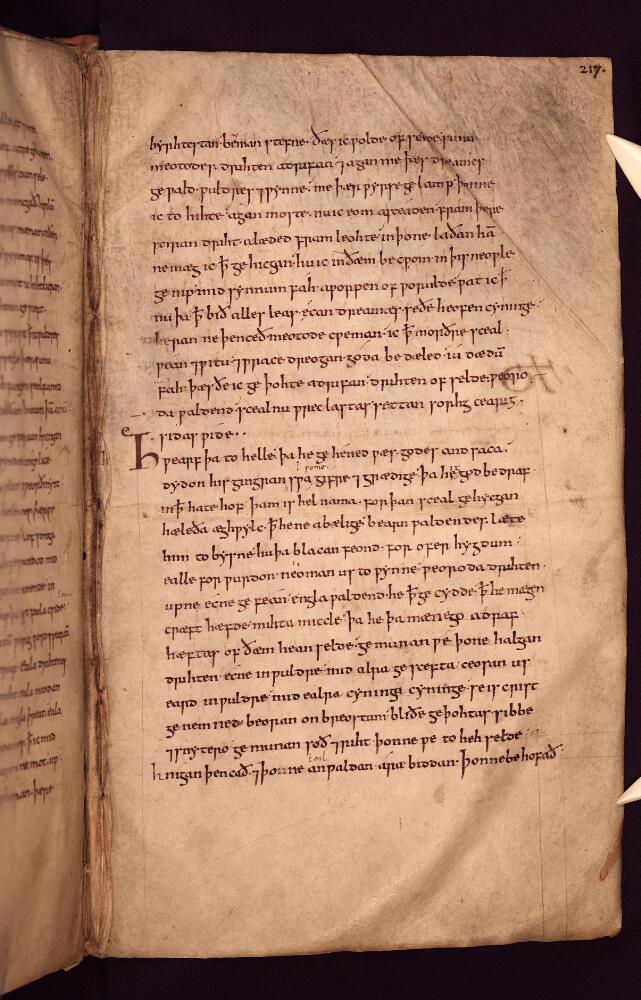 217.
byrhtestan· beman stefne· ðæs ic wolde of selde sunu
meotodes· drihten adrifan· ⁊ agan me þæs dreames
ge wald· wuldres ⁊ wynne· me þær wyrse ge lamp þonne
ic to hihte· agan moste· nu ic eom asceaden· fram þære
sciran driht· alæded fram leohte· in þone· laðan hā
ne mæg ic þ̄ ge hicgan· hu ic in ðæm be cwom· in þis neowle
ge nip· mid synnum fah· aworpen of worulde· wat ic þ̄
nu þa þ̄ bið alles leas· ecan dreamas· se ðe heofen cyninge·
heran ne þenceð· meotode cweman· ic þ̄ morðre sceal·
wean ⁊ witu· ⁊ wrace dreogan· goda be dæled· iu dædū
fah· þæs ðe ic ge þohte adrifan· drihten of selde· weoro
da waldend· sceal nu wrec lastas· settan sorhg cearig·
siðas wide··
Hwearf þa to helle· þa he ge hened wæs· godes and saca·
dydon his gingran swa gifre· ⁊ grædige· þa hig god bedraf·
some·
in þ̄ hate hof· þam is hel nama· for þan sceal gehycgan
hæleða æghwylc· þ̄ he ne abælige· bearn waldendes· læte
him to bysne· hu þa blacan feond· for ofer hygdum·
ealle for wurdon· neoman us to wynne· weoroda drihten·
uppne ecne ge fean· engla waldend· he þ̄ ge cydde· þ̄ he mægn
cræft hæfde· mihta miccle· þa he þa mænego adraf·
hæftas of ðæm hean selde· ge munan we þone halgan
drihten· ecne in wuldre· mid alra ge scefta· ceosan us
eard in wuldre· mid ealra cyninga cyninge· se is crist
ge nemned· beoran on breostum· bliðe ge þohtas· sibbe
⁊ snytero· ge munan soð ⁊ riht· þonne we to heh selde
hnigan þencað· ⁊ þonne anwaldan· ara biddan· þonne be hofað